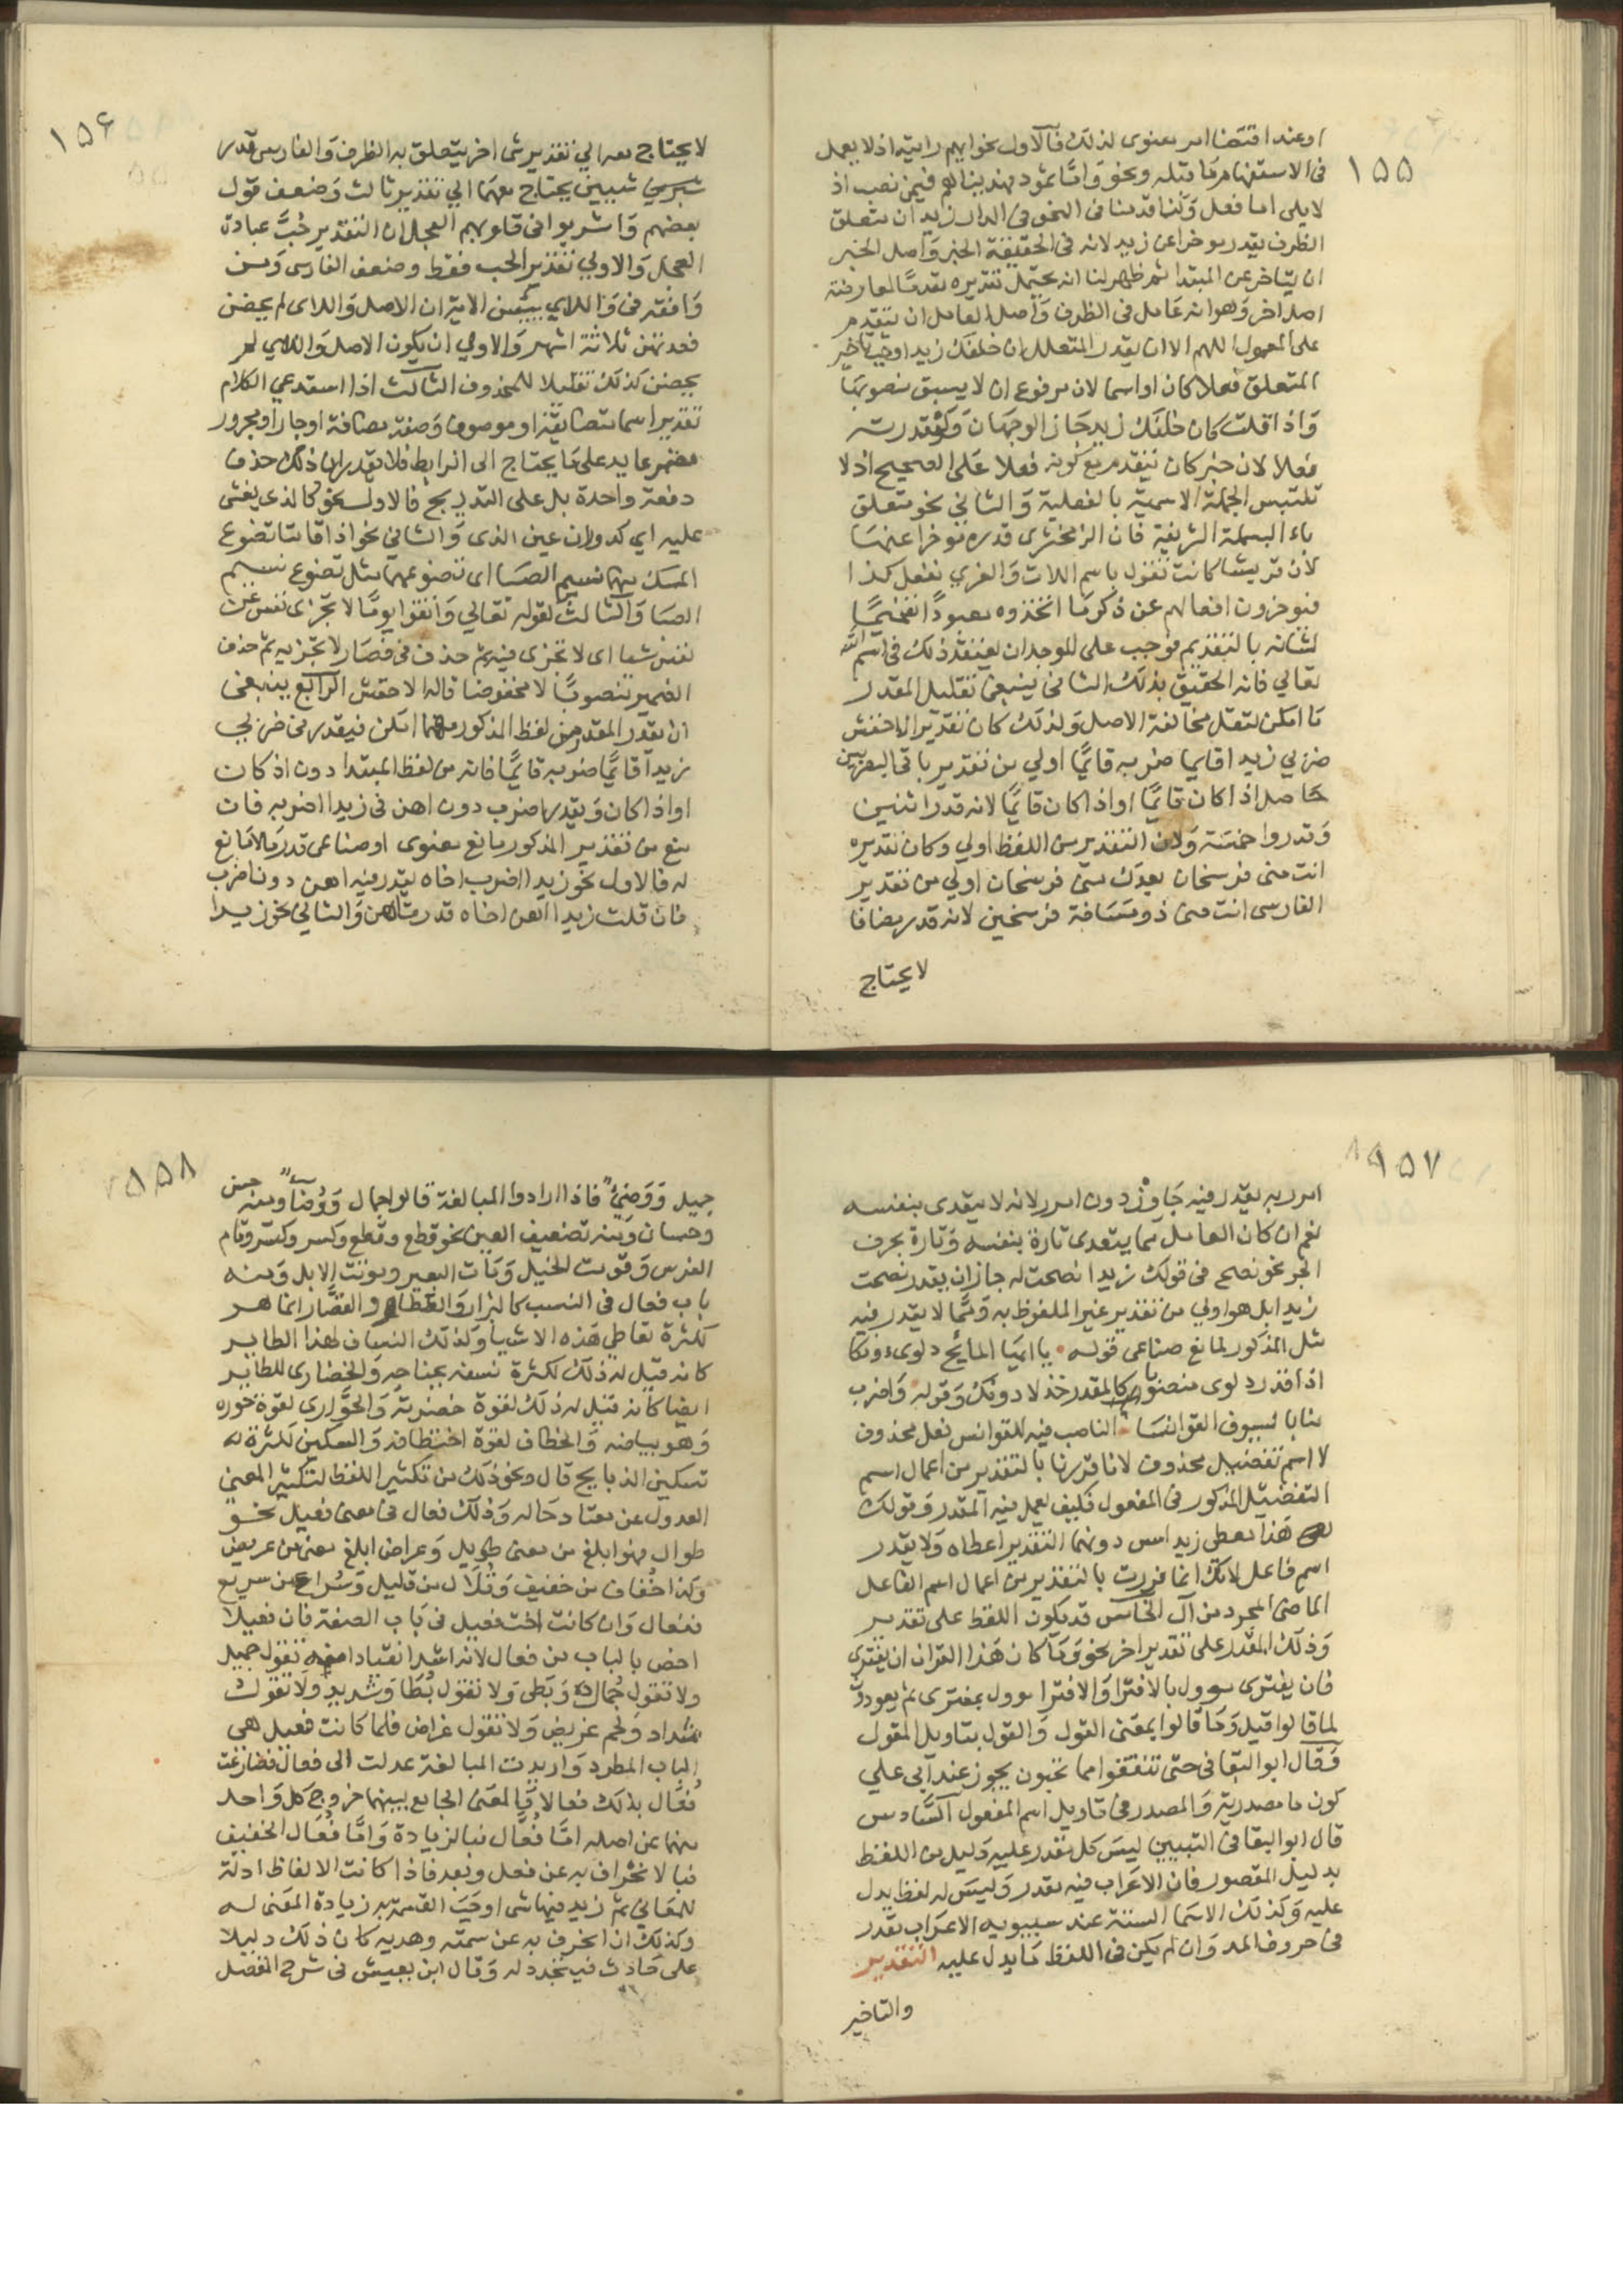 ١٥٥
او عند اقتضا امر معنوى لذلك فالاول نحو ايهم رايته اذ لا يعمل
فى الاستفهام ما قبله ونحو واما ثمود فهديناهم فيمن نصب اذ
لا يلى اما فعل وكنا قدمنا فى النحو فى الدار زيد ان متعلق
الظرف يقدر موخرا عن زيد لانه فى الحقيقة الخبر واصل الخبر
ان يتاخر عن المبتدا ثم ظهر لنا انه يحتمل تقديره مقدما لمعارضة
اصل اخر وهو انه عامل فى الظرف واصل العامل ان يتقدم
على المعمول اللهم الا ان يقدر المتعلق ان خلفك زيدا وجب تاخير
المتعلق فعلا كان او اسما لان مرفوع ان لا يسبق منصوبها
واذا قلت كان خلفك زيد جاز الوجهان ولو قدرته
فعلا لان خبر كان يتقدم مع كونه فعلا على الصحيح اذ لا
تلتبس الجملة الاسمية بالفعلية والثانى نحو متعلق
باء البسملة الشريفة فان الزمخشرى قدره موخرا عنها
لان قريشا كانت تقول باسم اللات والعزي نفعل كذا
فيوخرون افعالهم عن ذكر ما اتخذوه معبودا تفخيما
لشانه بالتقديم فوجب على الموحد ان يعتقد ذلك فى اسم الله
تعالي فانه الحقيق بذلك الثانى ينبغى تقليل المقدر
ما امكن لتقل مخالفة الاصل ولذلك كان تقدير الاخفش
ضربي زيدا قايما ضربه قائما اولي من تقدير باقى البصريين
حاصل اذا كان قائما او اذا كان قائما لانه قدر اثنين
وقدروا خمسة ولان التقدير من اللفظ اولي وكان تقديره
انت منى فرسخان بعدك منى فرسخان اولي من تقدير
الفارسى انت منى ذو مسافة فرسخين لانه قدر مضافا
لا يحتاج
١٥٦
لا يحتاج معه الي تقدير شى اخر يتعلق به الظرف والفارسى قدر
شيئين يحتاج معهما الي تقدير ثالث وضعف قول
بعضهم واشربوا فى قلوبهم العجل ان التقدير حب عبادة
العجل والاولي تقدير الحب فقط وضعف الفارسى ومن
وافقه فى واللاي يئسن الاية ان الاصل واللاى لم يحضن
فعدتهن ثلاثة اشهر والاولي ان يكون الاصل واللاي لم
يحضن كذلك تقليلا للمحذوف الثالث اذا استدعي الكلام
تقدير اسما متضايفة او موصوف وصفة مضافة او جار ومجرور
مضمر عايد على ما يحتاج الى الرابط فلا يقدر ان ذلك حذف
دفعة واحدة بل على التدريج فالاول نحو كالذى يغشى
عليه اي كدوران عين الذى والثاني نحو اذا قامتا تضوع
المسك منهما نسيم الصبا اى تضوعهما مثل تضوع نسيم
الصبا والثالث لقوله تعالي واتقوا يوما لا تجزى نفس عن
نفس شيا اى لا تجزى فيه ثم حذف فى فصار لا تجزيه ثم حذف
الضمير منصوبا لا مخفوضا قاله الاخفش الرابع ينبغى
ان يقدر المقدر من لفظ المذكور مهما امكن فيقدر فى ضربي
زيدا قائما ضربه قائما فانه من لفظ المبتدا دون اذ كان
او اذا كان ويقدر اضرب دون اهن فى زيدا اضربه فان
منع من تقدير المذكور مانع معنوى او صناعى قدر ما لا مانع
له فالاول نحو زيدا اضرب اخاه يقدر فيه اهن دون اضرب
فان قلت زيدا اهن اخاه قدرت اهن والثاني نحو زيدا
١٥٧
امرر به يقدر فيه جاوز دون امرر لانه لا يتعدى بنفسه
نعم ان كان العامل مما يتعدى تارة بنفسه وتارة بحرف
الجر نحو نصح فى قولك زيدا نصحت له جاز ان يقدر نصحت
زيدا بل هو اولي من تقدير غير الملفوظ به ومما لا يقدر فيه
مثل المذكور لمانع صناعى قوله يا ايها المايح دلوى دونكا
اذا قدر دلوى منصوبا كالمقدر خذ لا دونك وقوله واضرب
منا بالسيوف القوانسا الناصب فيه للقوانس فعل محذوف
لا اسم تفضيل محذوف لانا فررنا بالتقدير من اعمال اسم
التفضيل المذكور فى المفعول فكيف يعمل فيه المقدر وقولك
هذا معطى زيد امس درهما التقدير اعطاه ولا يقدر
اسم فاعل لانك انما فررت بالتقدير من اعمال اسم الفاعل
الماضى المجرد من آل الخامس قد يكون اللفظ على تقدير
وذلك المقدر على تقدير اخر نحو وما كان هذا القران ان يفترى
فان يفترى موول بالافترا والافترا موول بمفترى ثم يعودون
لما قالوا قيل وما قالوا بمعنى القول والقول بتاويل المقول
وقال ابو البقا فى حتى تنفقوا مما تحبون يجوز عند ابى علي
كون ما مصدرية والمصدر فى تاويل اسم المفعول السادس
قال ابو البقا فى التبيين ليس كل مقدر عليه دليل من اللفظ
بدليل المقصور فان الاعراب فيه مقدر وليس له لفظ يدل
عليه وكذلك الاسما الستة عند سيبويه الاعراب مقدر
فى حروف المد وان لم يكن فى اللفظ ما يدل عليه التقدير
والتاخير
١٥٨
جميل ووضئ فاذا ارادوا المبالغة قالوا جمال ووضا ومنه حسن
وحسان ومنه تضعيف العين نحو قطع وقطع وكسر وكسر وقام
الفرس وقومت الخيل ومات البعير وموتت الابل ومنه
باب فعال فى النسب كالبزاز والعطار والقصار انما هو
لكثرة تعاطي هذه الاشيا وكذلك النساف لهذا الطاير
كانه قيل له ذلك لكثرة نسفه بجناحه والخضارى للطاير
ايضا كانه قيل له ذلك لقوة خضرته والحوارى لقوة حوره
وهو بياضه والخطاف لقوة اختطافه والسكين لكثرة له
تسكين الذبايح قال ونحو ذلك من تكثير اللفظ لتكثير المعنى
العدول عن معتاد حاله وذلك فعال فى معنى فعيل نحو
طوال فهو ابلغ من معنى طويل وعراض ابلغ معنى من عريض
وكذا خفاف من خفيف وقلال من قليل وسراع من سريع
ففعال وان كانت اخت فعيل فى باب الصفة فان فعيلا
اخص بالباب من فعال لانه اشد انقيادا منه تقول جميل
ولا تقول جمال وبطى ولا تقول بطا وشديد ولا تقول
شداد ولحم غريض ولا تقول غراض فلما كانت فعيل هى
الباب المطرد واريدت المبالغة عدلت الى فعال فضارعت
فعال بذلك فعالا والمعنى الجامع بينهما خروج كل واحد
منهما عن اصله اما فعال فبالزيادة واما فعال الخفيف
فبالانحراف به عن فعيل وبعد فاذا كانت الالفاظ ادلة
المعاني ثم زيد فيها شى اوجبت القسمة به زيادة المعنى له
وكذلك ان انحرف به عن سمته وهديه كان ذلك دليلا
على حادث متجدد له وقال ابن يعيش فى شرح المفصل